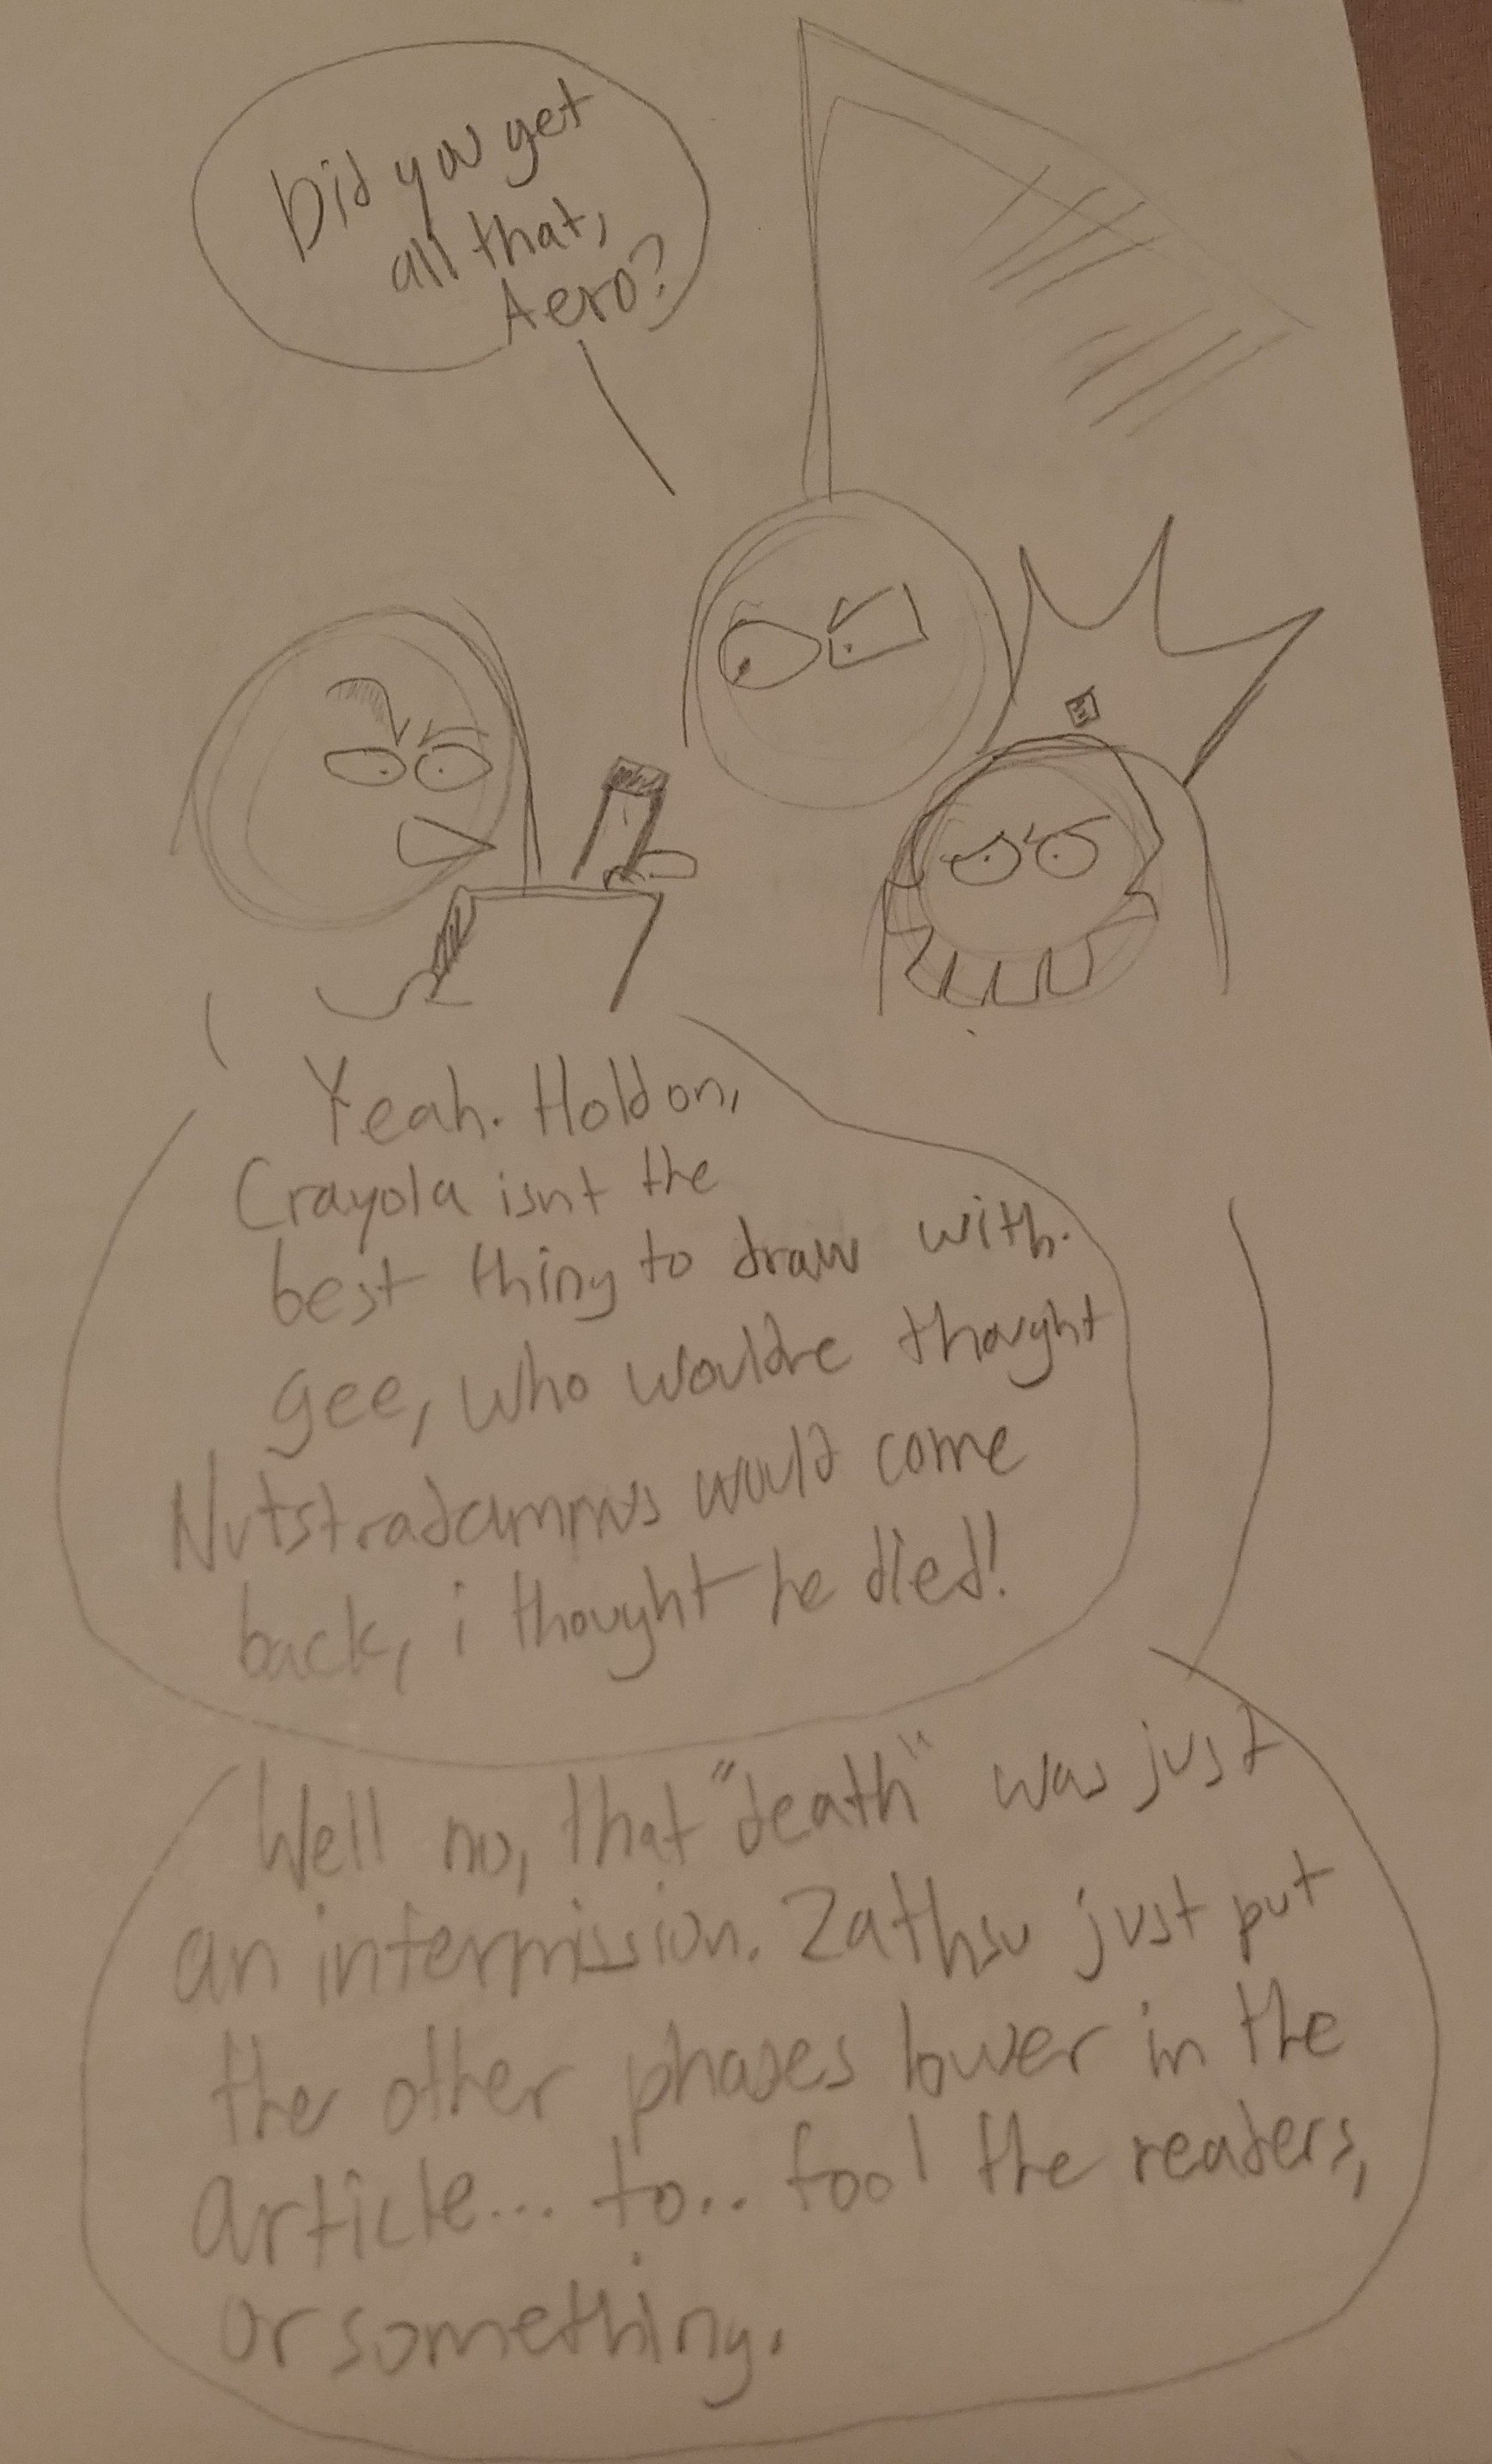 Did you get
all that,
Aero?
Yeah. Hold on,
Crayola isnt the
best thing to draw with.
gee, who wouldve thought
Nutstradammus would come
back, i thought he died!
Well no, that "death" was just
an intermission. Zathsu just put
the other phases lower in the
article... to.. fool the readers,
or something.